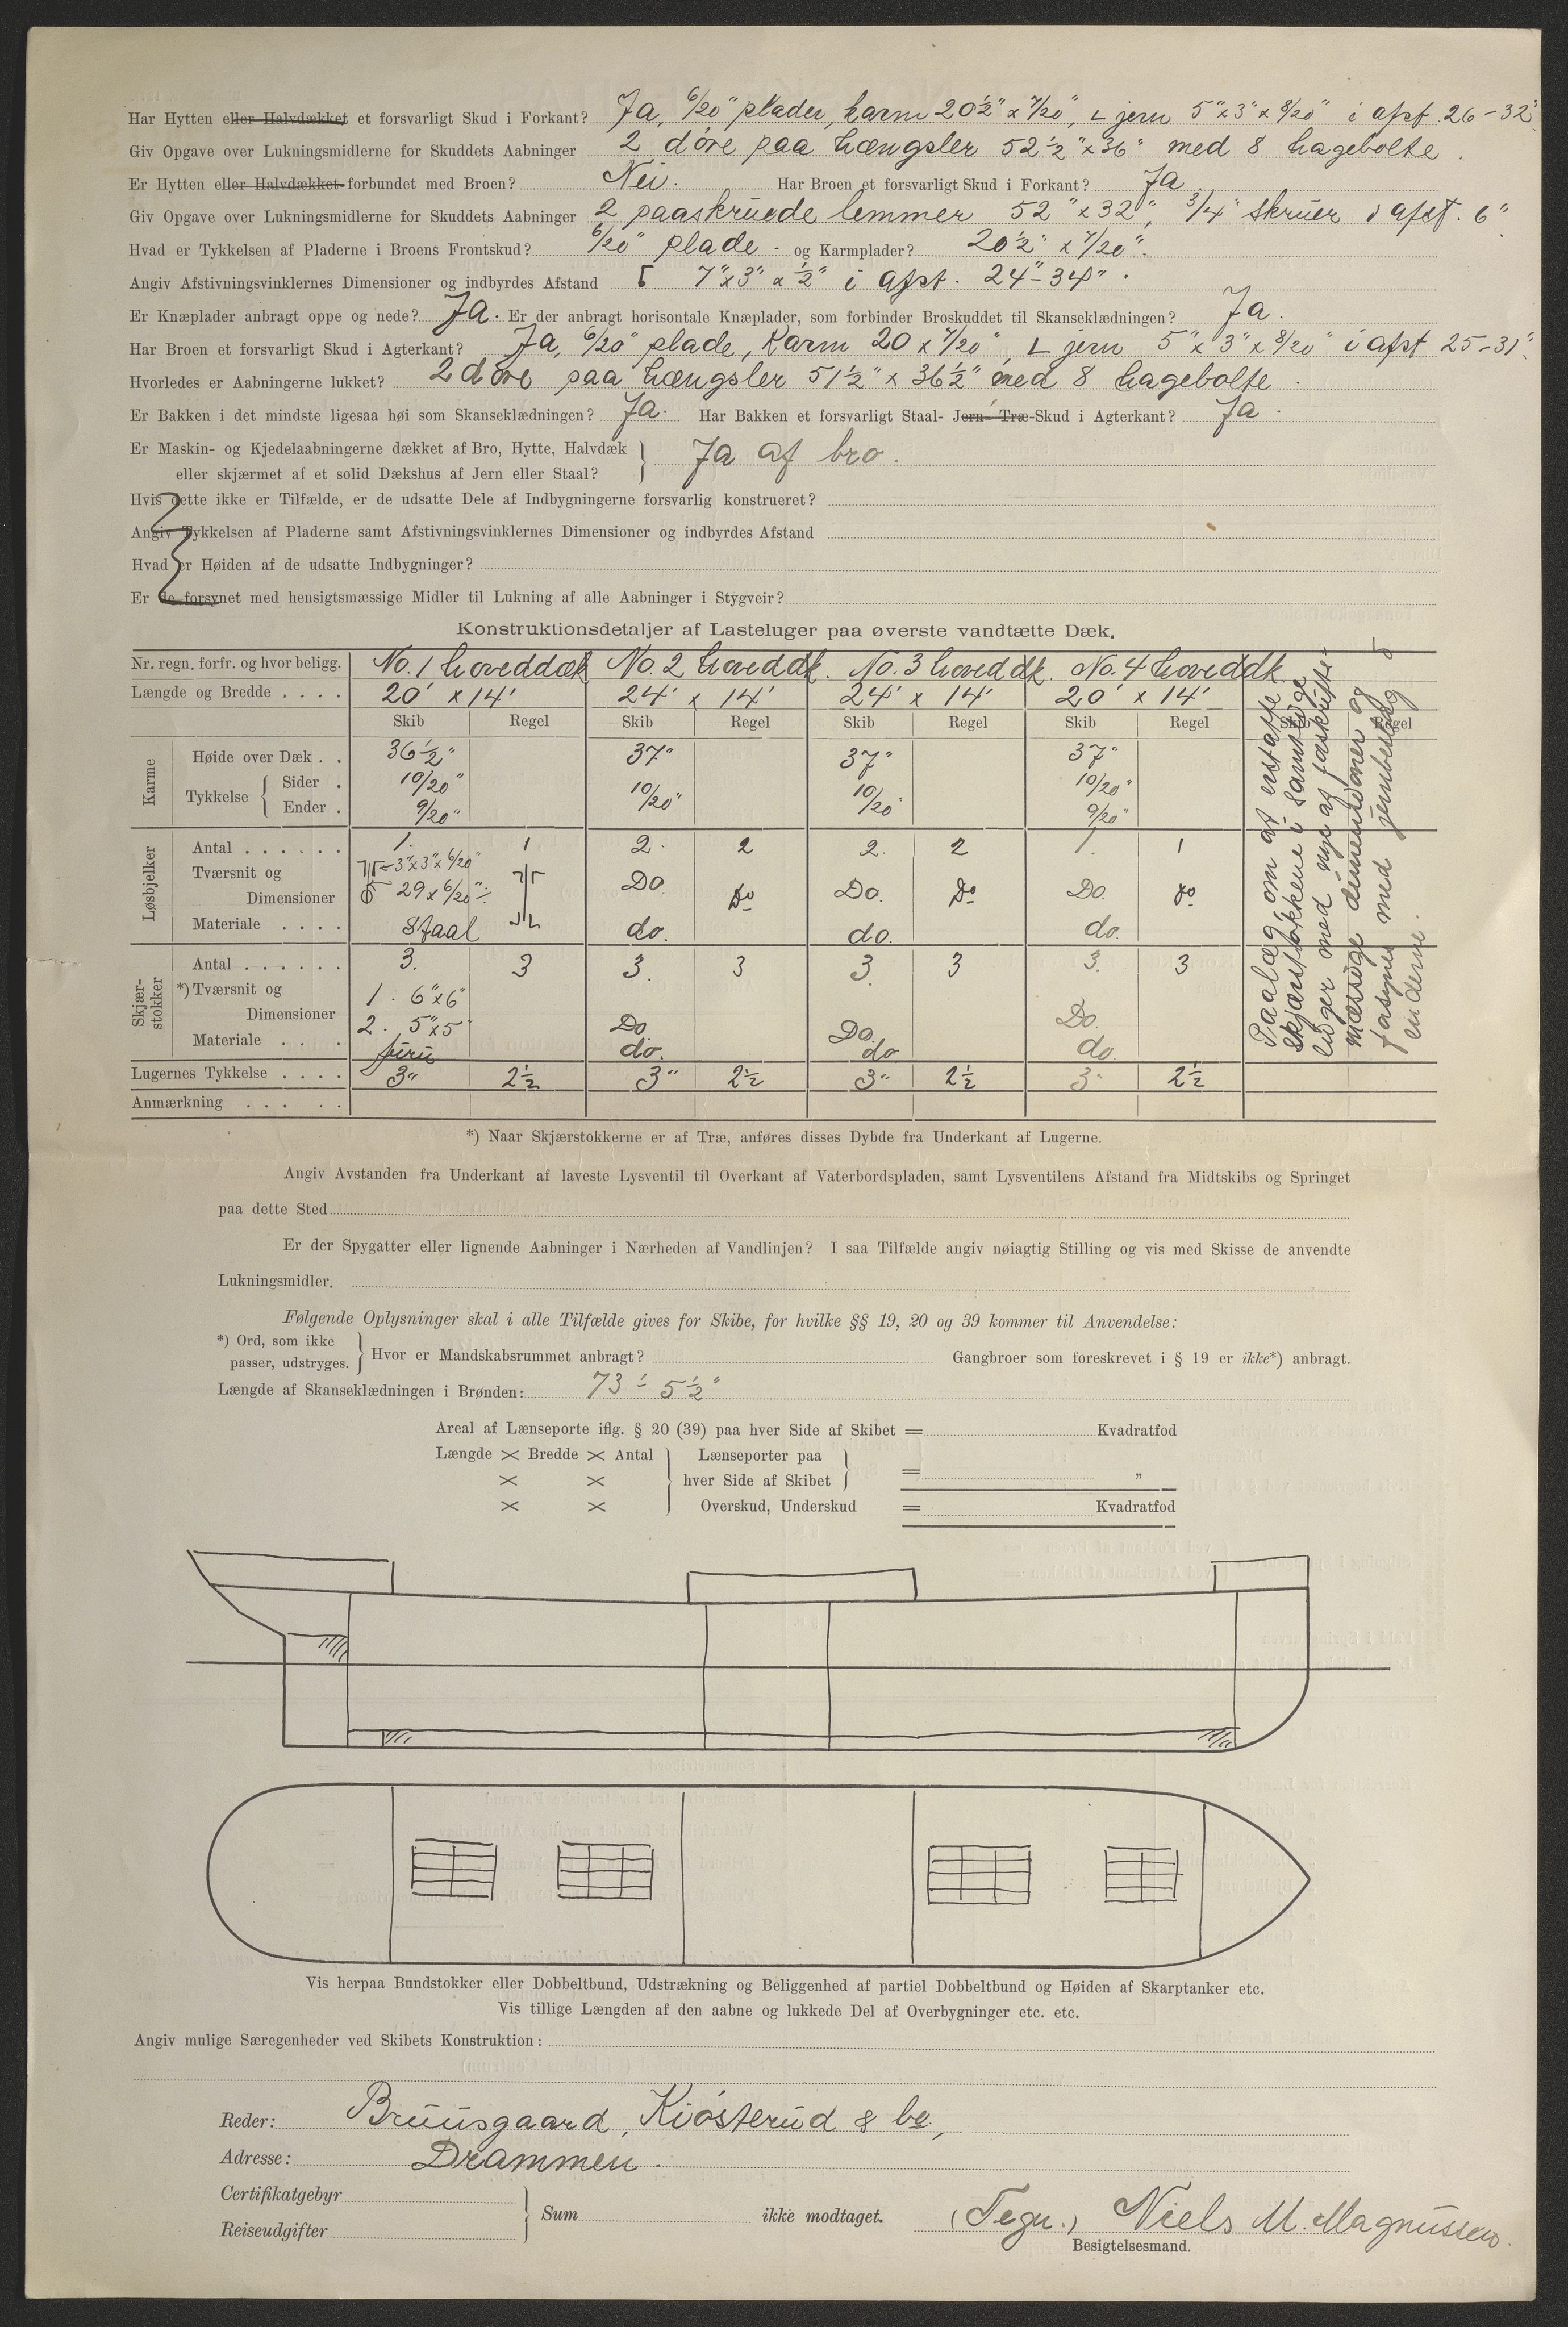 Har Hytten eller Halvdækket et forsvarligt Skud i Forkant? Ja, 6/20" plader, karm 20½" x 7/20", L jern 5" x 3" x 8/20" i afst. 26-32"
Giv Opgave over Lukningsmidlerne for Skuddets Aabninger 2 døre paa hængsler 52½" x 36" med 8 hagebolte.
Er Hytten eller Halvdækket forbundet med Broen? Nei. Har Broen et forsvarligt Skud i Forkant? Ja
Giv Opgave over Lukningsmidlerne for Skuddets Aabninger 2 paaskruede lemmer 52" x 32", 3/4" skruer i afst. 6"
Hvad er Tykkelsen af Pladerne i Broens Frontskud? 6/20" plade - og Karmplader? 20½" x 7/20".
Angiv Afstivningsvinklernes Dimensioner og indbyrdes Afstand 7" x 3" x ½" i afst. 24"-34".
Er Knæplader anbragt oppe og nede? Ja. Er der anbragt horisontale Knæplader, som forbinder Broskuddet til Skanseklædningen? Ja.
Har Broen et forsvarligt Skud i Agterkant? Ja, 6/20" plade, Karm 20 x 7/20", L jern 5" x 3" x 8/20" i afst 25-31".
Hvorledes er Aabningerne lukket? 2 døre paa hængsler 51½" x 36½" med 8 hagebolte.
Er Bakken i det mindste ligesaa høi som Skanseklædningen? Ja. Har Bakken et forsvarligt Staal- Jern- Træ-Skud i Agterkant? Ja.
Er Maskin- og Kjedelaabningerne dækket af Bro, Hytte, Halvdæk
eller skjærmet af et solid Dækshus af Jern eller Staal? } Ja af bro.
Hvis dette ikke er Tilfælde, er de udsatte Dele af Indbygningerne forsvarlig konstrueret?
Angiv Tykkelsen af Pladerne samt Afstivningsvinklernes Dimensioner og indbyrdes Afstand
Hvad er Høiden af de udsatte Indbygninger?
Er de forsynet med hensigtsmæssige Midler til Lukning af alle Aabninger i Stygveir?
Konstruktionsdetaljer af Lasteluger paa øverste vandtætte Dæk.
Nr. regn. forfr. og hvor beligg. No. 1 hoveddæk No. 2 hoveddk. No. 3 hoveddk. No. 4 hoveddk.
Længde og Bredde . . . . 20' x 14' 24' x 14' 24' x 14' 20' x 14'
Skib Regel Skib Regel Skib Regel Skib Regel Skib Regel
Karme
Høide over Dæk . . 36½" 37" 37" 37"
Tykkelse { Sider . 10/20" 10/20" 10/20" 10/20"
Ender . 9/20" 9/20"
Løsbjelker
Antal . . . . . . 1. 1 2. 2 2. 2 1. 1
Tværsnit og 3" x 3" x 6/20"
Dimensioner 29 x 6/20" Do. Do Do. Do Do. do
Materiale . . . . Staal do. do. do.
Skjær-stokker
Antal . . . . . . 3. 3 3. 3 3. 3 3. 3
*) Tværsnit og 1. 6" x 6"
Dimensioner 2. 5" x 5" Do. Do. Do.
Materiale . . . furu do. do do.
Lugernes Tykkelse . . . . 3" 2½ 3" 2½ 3" 2½ 3" 2½
Anmærkning . . . . .
Paalæg om at erstatte
skjærstokkene i samtlige
luger med nye af forskrifts-
mæssige dimensioner og
forsynes med jernbeslag
enderne.
*) Naar Skjærstokkerne er af Træ, anføres disses Dybde fra Underkant af Lugerne.
Angiv Avstanden fra Underkant af laveste Lysventil til Overkant af Vaterbordspladen, samt Lysventilens Afstand fra Midtskibs og Springet
paa dette Sted
Er der Spygatter eller lignende Aabninger i Nærheden af Vandlinjen? I saa Tilfælde angiv nøiagtig Stilling og vis med Skisse de anvendte
Lukningsmidler.
Følgende Oplysninger skal i alle Tilfælde gives for Skibe, for hvilke §§ 19, 20 og 39 kommer til Anvendelse:
*) Ord, som ikke
passer, udstryges. } Hvor er Mandskabsrummet anbragt? Gangbroer som foreskrevet i § 19 er ikke*) anbragt.
Længde af Skanseklædningen i Brønden: 73'-5½"
Areal af Længseporte iflg. § 20 (39) paa hver Side af Skibet = Kvadratfod
Længde × Bredde × Antal } Lænseporter paa
× × hver Side af Skibet } = "
× × Overskud, Underskud = Kvadratfod
Vis herpaa Bundstokker eller Dobbeltbund, Udstrækning og Beliggenhed af partiel Dobbeltbund og Høiden af Skarptanker etc.
Vis tillige Længden af den aabne og lukkede Del af Overbygninger etc. etc.
Angiv mulige Særegenheder ved Skibets Konstruktion:
Reder: Bruusgaard, Kiøsterud & Co.,
Adresse: Drammen.
Certifikatgebyr
Reiseudgifter } Sum ikke modtaget. (Tegn.) Niels M. Magnussen.
Besigtelsesmand.